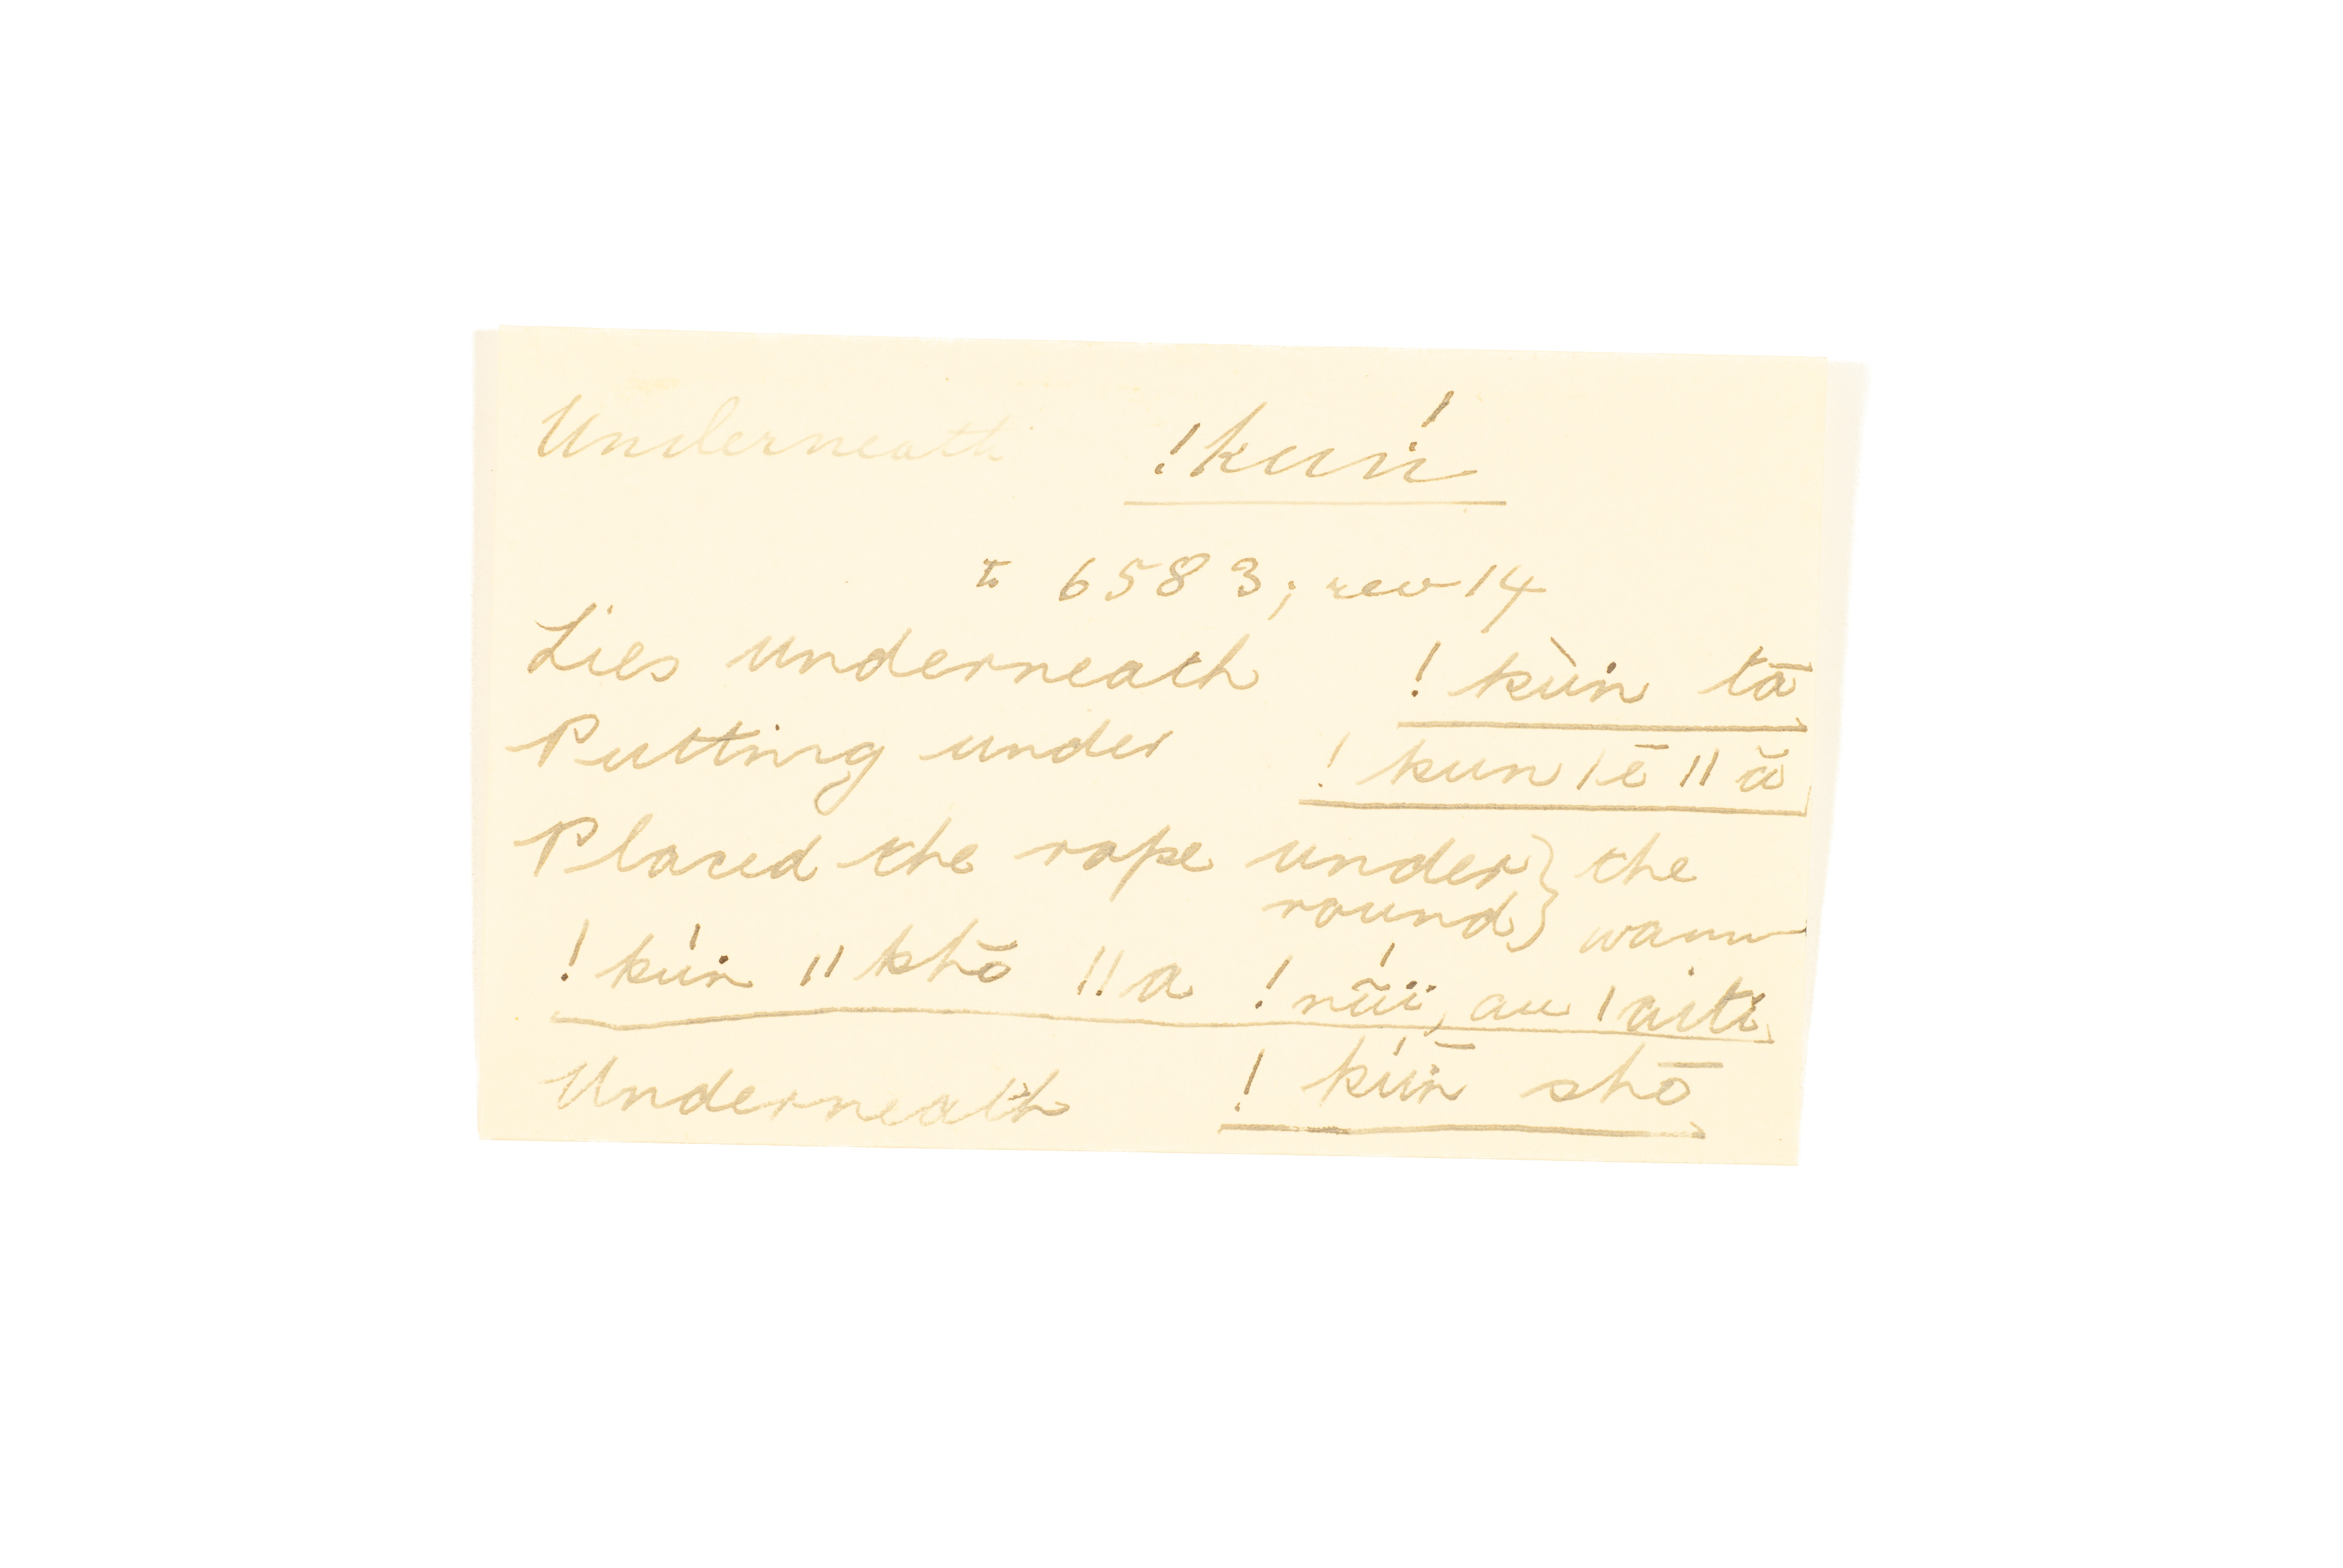 Underneath !kuṅ́
6583; rev 14
Lies underneath !kùṅ tā
Putting under !kun |ē ||ă
Placed the rope under } the
round } wann
!kúṅ ||khō ||a !nũï, au |aiti
Underneath !kúṅ shō